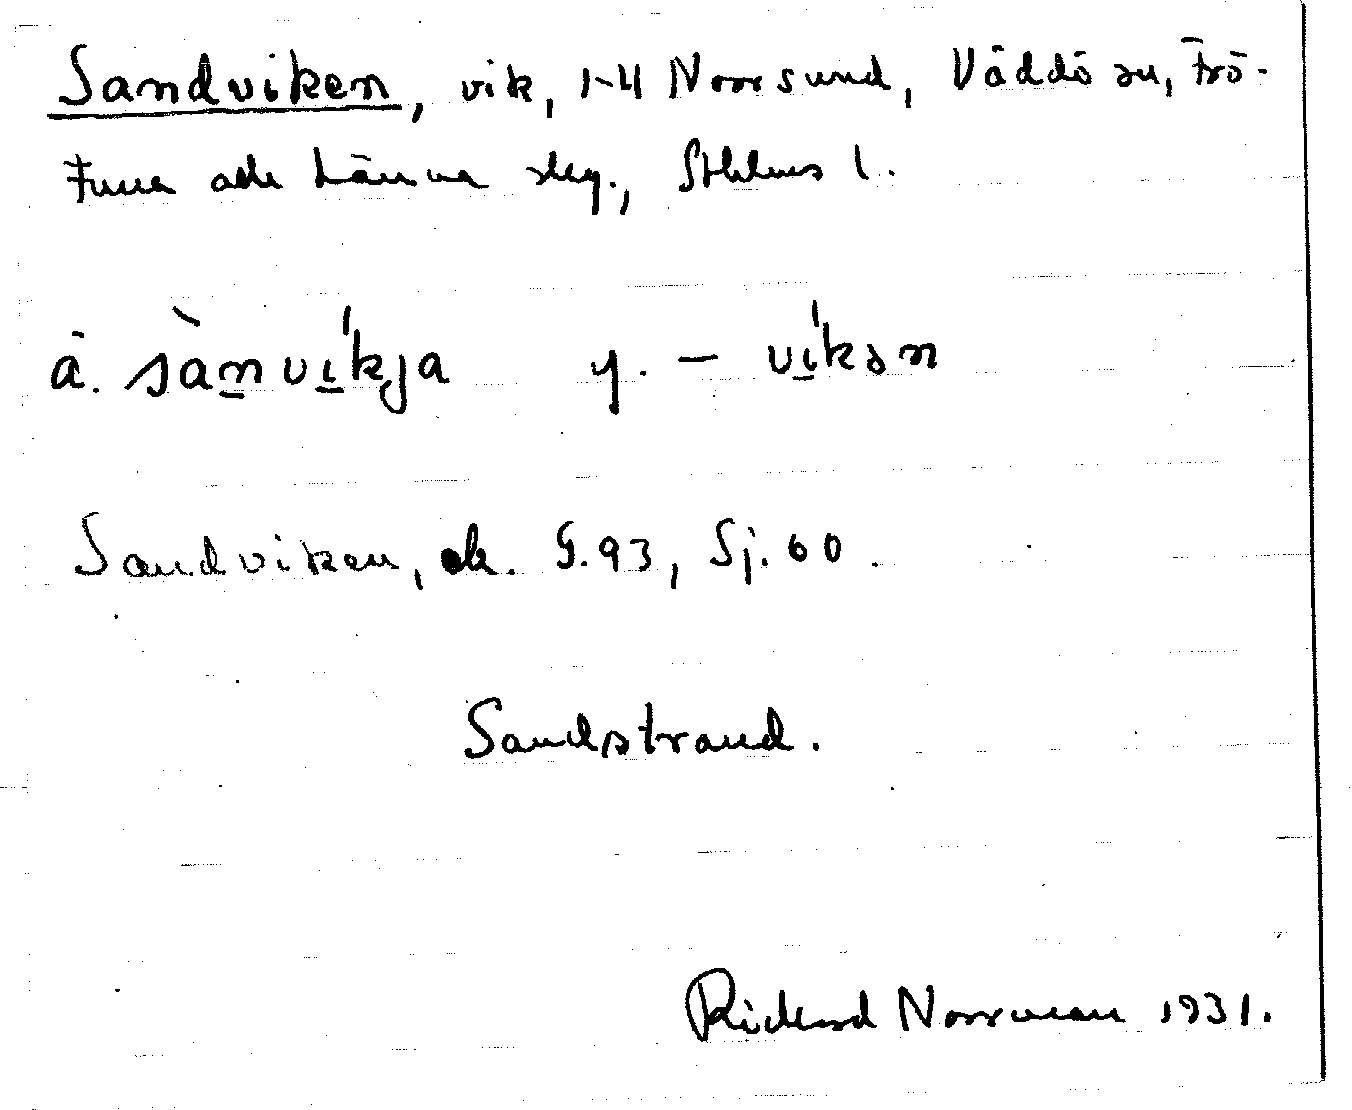 Sandviken, vik, 1-4 Norrsund, Väddö sn, Frö-
tuna och Länna skg., Sthlms l.
ä. sànvíkja y. – víkən
Sandviken, ek. G.93, Sj.60.
Sandstrand.
Rickard Norrman 1931.